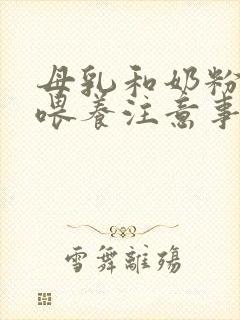 母乳和奶粉
喂养注意事
雪舞離殤